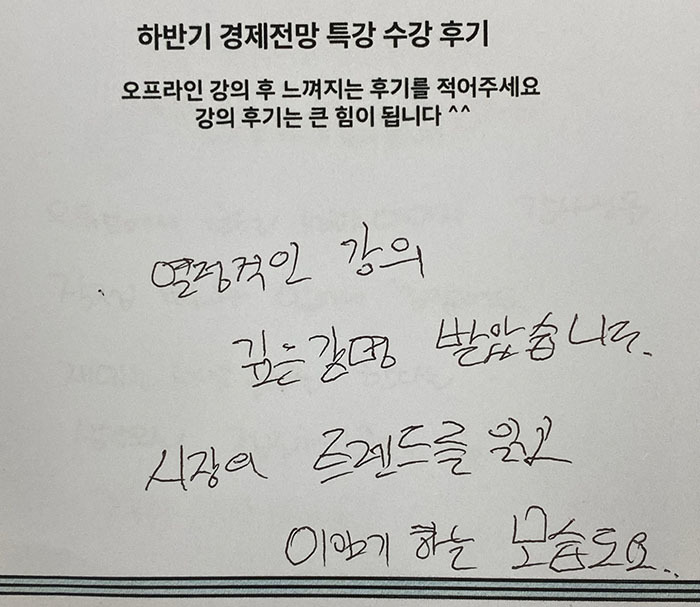 하반기 경제전망 특강 수강 후기
오프라인 강의 후 느껴지는 후기를 적어주세요
강의 후기는 큰 힘이 됩니다 ^^
열정적인 강의
깊은감명 받았습니다.
시장의 트렌드를 읽고
이야기 하는 모습도요..